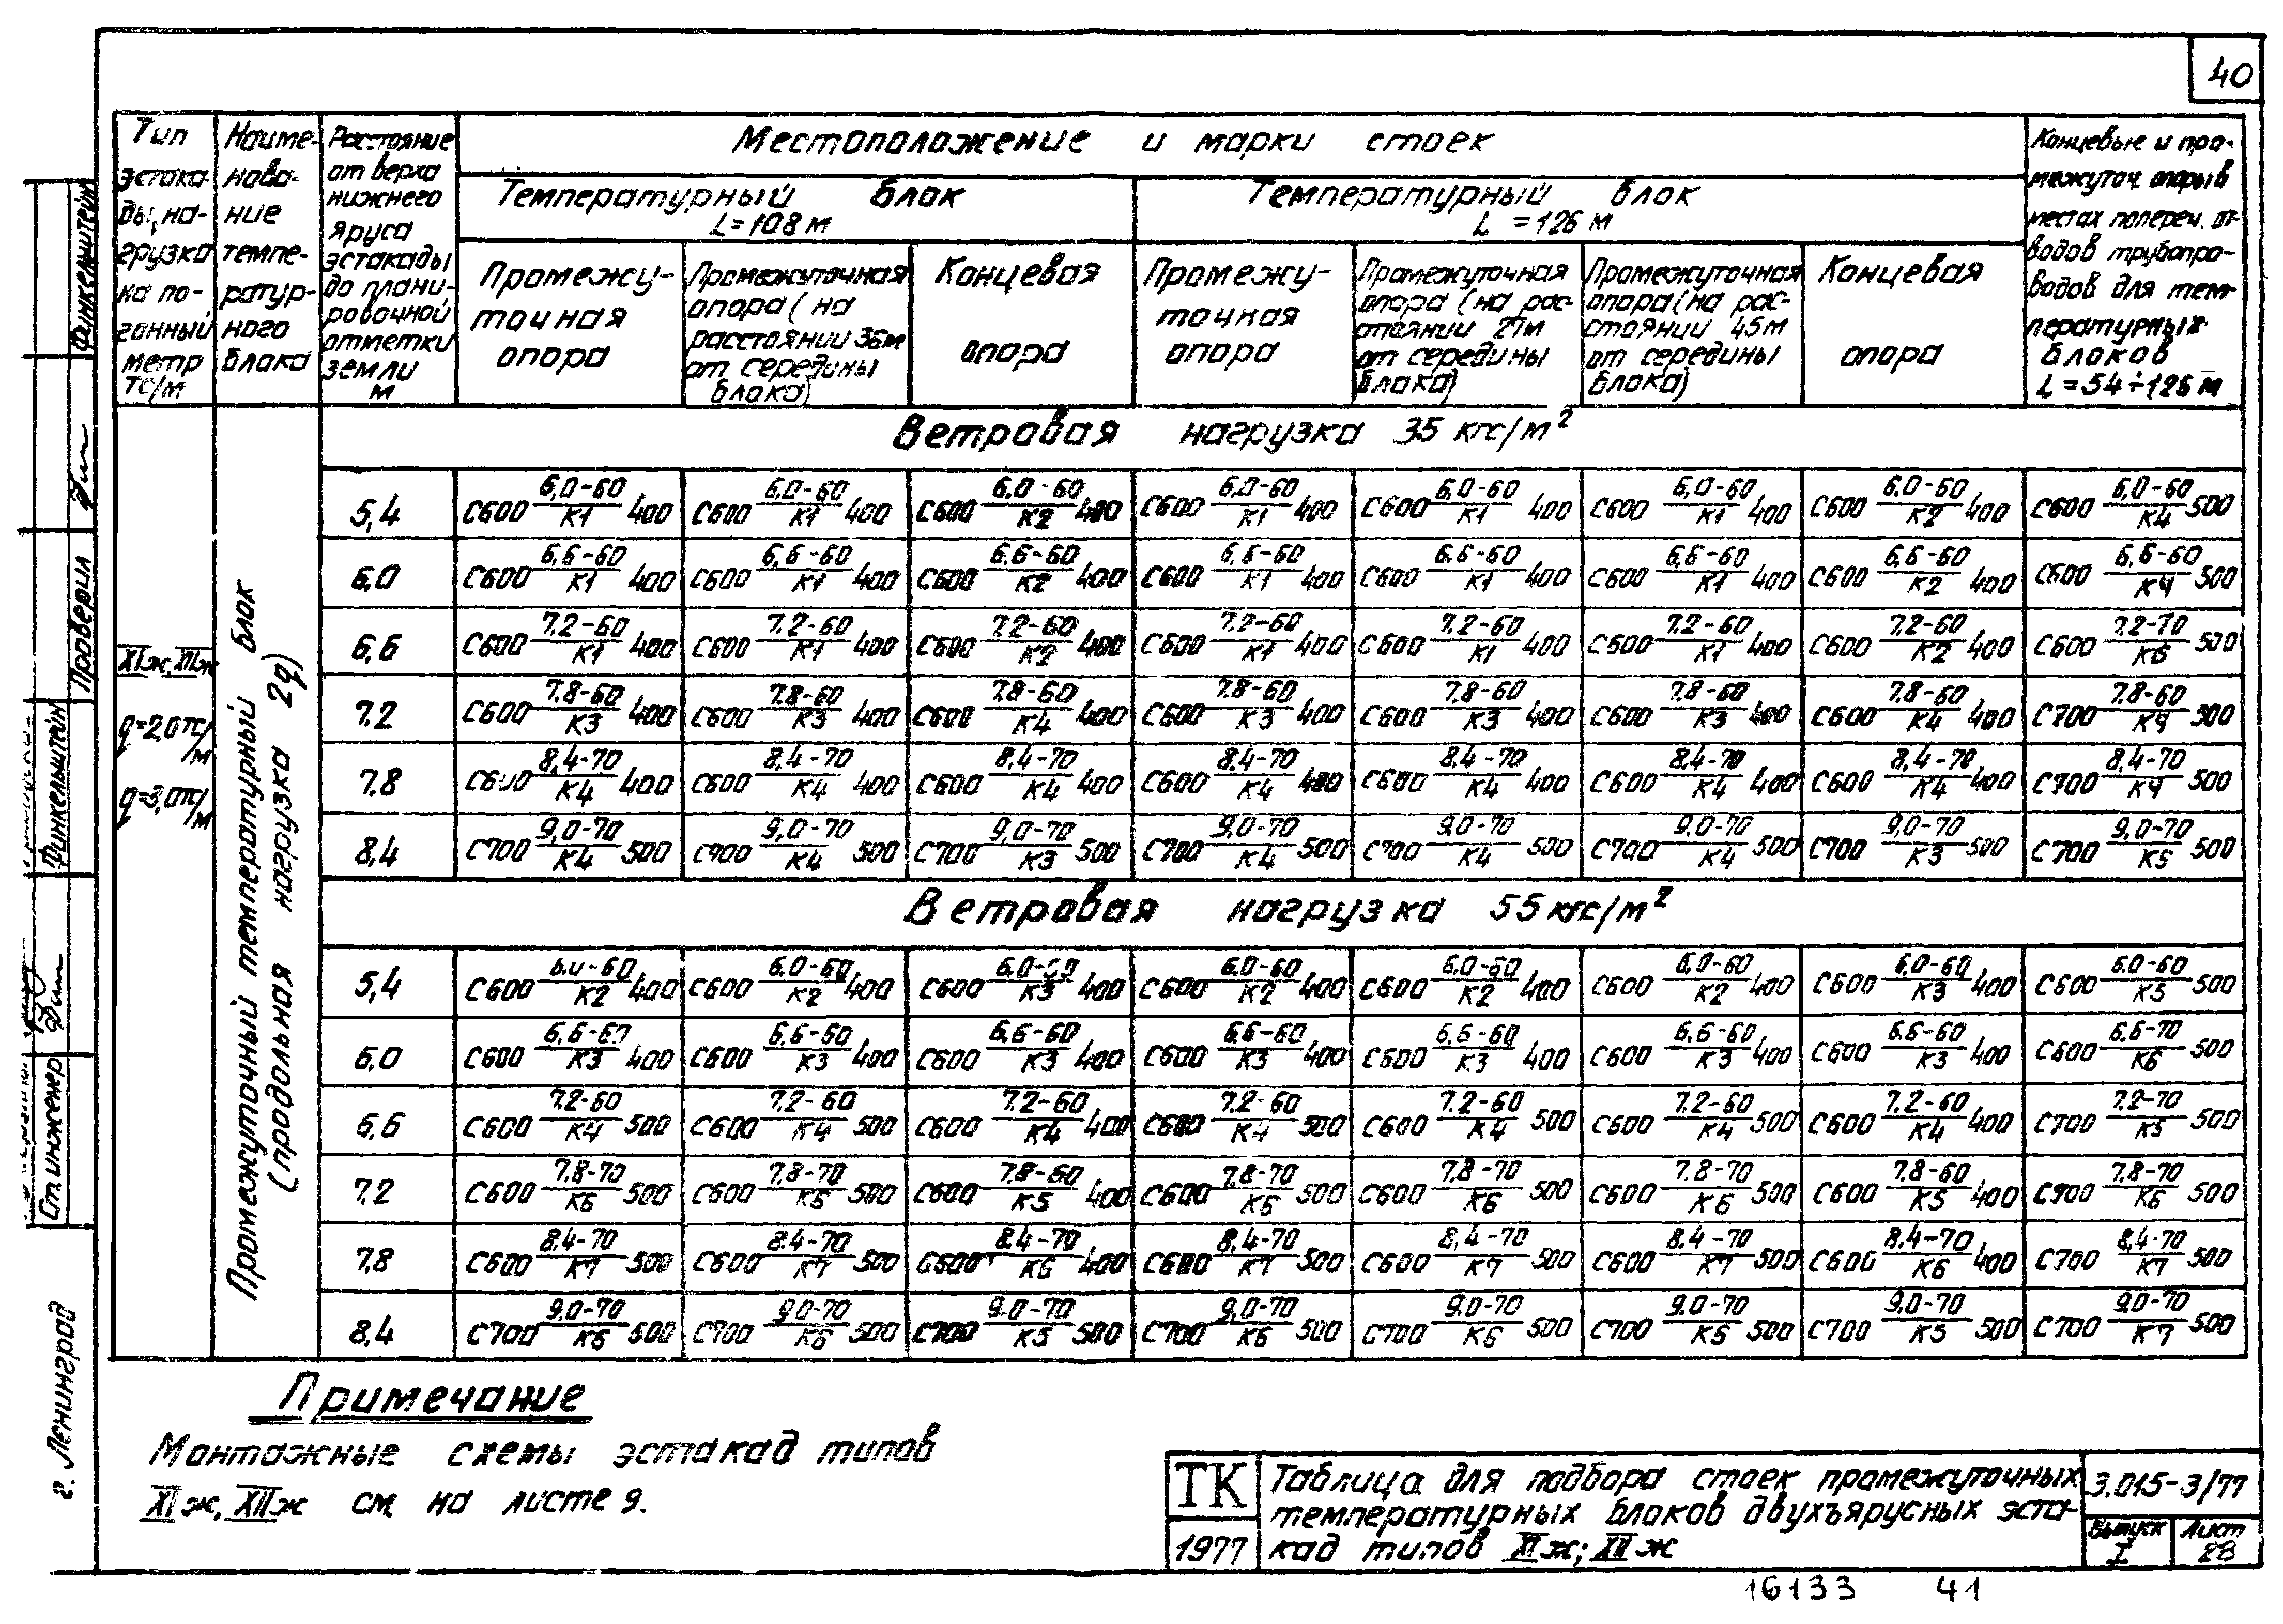 40
Тип эстакады, нагрузка на погонный метр тс/м
Наименование температурного блока
Расстояние от верха нижнего яруса эстакады до планировочной отметки земли м
Местоположение и марки стоек
Концевые и промежуточ. опоры в местах попереч. отводов трубопроводов для температурных блоков L=54÷126 м
Температурный блок L=108 м
Температурный блок L=126 м
Промежуточная опора
Промежуточная опора (на расстоянии 36м от середины блока)
Концевая опора
Промежуточная опора
Промежуточная опора (на расстоянии 27м от середины блока)
Промежуточная опора (на расстоянии 45м от середины блока)
Концевая опора
XIж, XIIж
q=2,0тс/м
q=3,0тс/м
Промежуточный температурный блок
(продольная нагрузка 2q)
Ветровая нагрузка 35 кгс/м²
5,4 С600 6,0-60/К1 400 С600 6,0-60/К1 400 С600 6,0-60/К2 400 С600 6,0-60/К1 400 С600 6,0-60/К1 400 С600 6,0-60/К1 400 С600 6,0-60/К2 400 С600 6,0-60/К4 500
6,0 С600 6,6-60/К1 400 С600 6,6-60/К1 400 С600 6,6-60/К2 400 С600 6,6-60/К1 400 С600 6,6-60/К1 400 С600 6,6-60/К1 400 С600 6,6-60/К2 400 С600 6,6-60/К4 500
6,6 С600 7,2-60/К1 400 С600 7,2-60/К1 400 С600 7,2-60/К2 400 С600 7,2-60/К1 400 С600 7,2-60/К1 400 С600 7,2-60/К1 400 С600 7,2-60/К2 400 С600 7,2-70/К6 500
7,2 С600 7,8-60/К3 400 С600 7,8-60/К3 400 С600 7,8-60/К4 400 С600 7,8-60/К3 400 С600 7,8-60/К3 400 С600 7,8-60/К3 400 С600 7,8-60/К4 400 С700 7,8-60/К4 500
7,8 С600 8,4-70/К4 400 С600 8,4-70/К4 400 С600 8,4-70/К4 400 С600 8,4-70/К4 400 С600 8,4-70/К4 400 С600 8,4-70/К4 400 С600 8,4-70/К4 400 С700 8,4-70/К4 500
8,4 С700 9,0-70/К4 500 С700 9,0-70/К4 500 С700 9,0-70/К3 500 С700 9,0-70/К4 500 С700 9,0-70/К4 500 С700 9,0-70/К4 500 С700 9,0-70/К3 500 С700 9,0-70/К5 500
Ветровая нагрузка 55 кгс/м²
5,4 С600 6,0-60/К2 400 С600 6,0-60/К2 400 С600 6,0-60/К3 400 С600 6,0-60/К2 400 С600 6,0-60/К2 400 С600 6,0-60/К2 400 С600 6,0-60/К3 400 С600 6,0-60/К5 500
6,0 С600 6,6-60/К3 400 С600 6,6-60/К3 400 С600 6,6-60/К3 400 С600 6,6-60/К3 400 С600 6,6-60/К3 400 С600 6,6-60/К3 400 С600 6,6-60/К3 400 С600 6,6-70/К6 500
6,6 С600 7,2-60/К4 500 С600 7,2-60/К4 500 С600 7,2-60/К4 400 С600 7,2-60/К4 500 С600 7,2-60/К4 500 С600 7,2-60/К4 500 С600 7,2-60/К4 400 С700 7,2-70/К5 500
7,2 С600 7,8-70/К6 500 С600 7,8-70/К5 500 С600 7,8-60/К5 400 С600 7,8-70/К6 500 С600 7,8-70/К6 500 С600 7,8-70/К6 500 С600 7,8-60/К5 400 С700 7,8-70/К6 500
7,8 С600 8,4-70/К7 500 С600 8,4-70/К7 500 С600 8,4-70/К6 400 С600 8,4-70/К7 500 С600 8,4-70/К7 500 С600 8,4-70/К7 500 С600 8,4-70/К6 400 С700 8,4-70/К7 500
8,4 С700 9,0-70/К6 500 С700 9,0-70/К6 500 С700 9,0-70/К5 500 С700 9,0-70/К6 500 С700 9,0-70/К6 500 С700 9,0-70/К6 500 С700 9,0-70/К5 500 С700 9,0-70/К7 500
Примечание
Монтажные схемы эстакад типов
XIж, XIIж см. на листе 9.
ТК
1977
Таблица для подбора стоек промежуточных
температурных блоков двухъярусных эста-
кад типов XIж; XIIж
3.015-3/77
Выпуск I
Лист 28
16133 41
Финкельштейн
Проверил
Финкельштейн
Ст. инженер
г. Ленинград